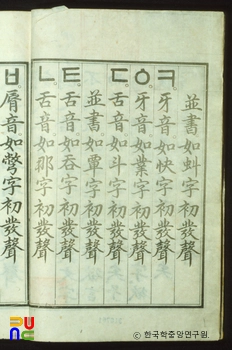 並書如虯字初發聲
ㅋ 牙音如快字初發聲
ㆁ 牙音如業字初發聲
ㄷ 舌音如斗字初發聲
並書如覃字初發聲
ㅌ 舌音如呑字初發聲
ㄴ 舌音如那字初發聲
ㅂ 脣音如彆字初發聲
한국학중앙연구원